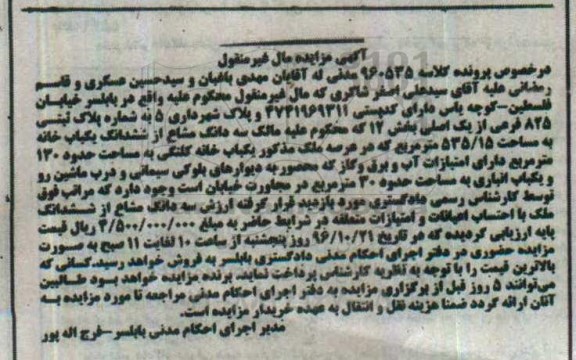 آگهی مزایده مال غیرمنقول
درخصوص پرونده کلاسه ۹۶۰۵۳۵ مدنی له آقایان مهدی باغبان و سیدحسین عسکری و قاسم
رمضانی علیه آقای سیدعلی اصغر شاکری که مال غیرمنقول محکوم علیه واقع در بابلسر خیابان
فلسطین-کوچه یاس دارای کدپستی ۴۷۴۱۹۶۹۳۱۱ و پلاک شهرداری ۵ به شماره پلاک ثبتی
۸۲۵ فرعی از یک اصلی بخش ۱۲ که محکوم علیه مالک سه دانگ مشاع از ششدانگ یکباب خانه
به مساحت ۵۳۵/۱۵ مترمربع که در عرصه ملک مذکور یکباب خانه کلنگی به مساحت حدود ۱۳۰
مترمربع دارای امتیازات آب و برق وگاز که محصور به دیوارهای بلوکی سیمانی و درب ماشین رو
و یکباب انباری به مساحت حدود ۳۰ مترمربع در مجاورت خیابان است وجود دارد که مراتب فوق
توسط کارشناس رسمی دادگستری مورد بازدید قرار گرفته ارزش سه دانگ مشاع از ششدانگ
ملک با احتساب اعیانات و امتیازات متعلقه در شرایط حاضر به مبلغ ۴/۵۰۰/۰۰۰/۰۰۰ ریال قیمت
پایه ارزیابی گردیده که در تاریخ ۹۶/۱۰/۲۱ روز پنجشنبه از ساعت ۱۰ لغایت ۱۱ صبح به صورت
مزایده حضوری در دفتر اجرای احکام مدنی دادگستری بابلسر به فروش خواهد رسید.کسانی که
بالاترین قیمت را با توجه به نظریه کارشناس پرداخت نماید، برنده مزایده خواهد بود طالبین
می‌توانند ۵ روز قبل از برگزاری مزایده به دفتر اجرای احکام مدنی مراجعه تا مورد مزایده به
آنان ارائه گردد ضمنا هزینه نقل و انتقال به عهده خریدار مزایده است.
مدیر اجرای احکام مدنی بابلسر-فرج اله پور